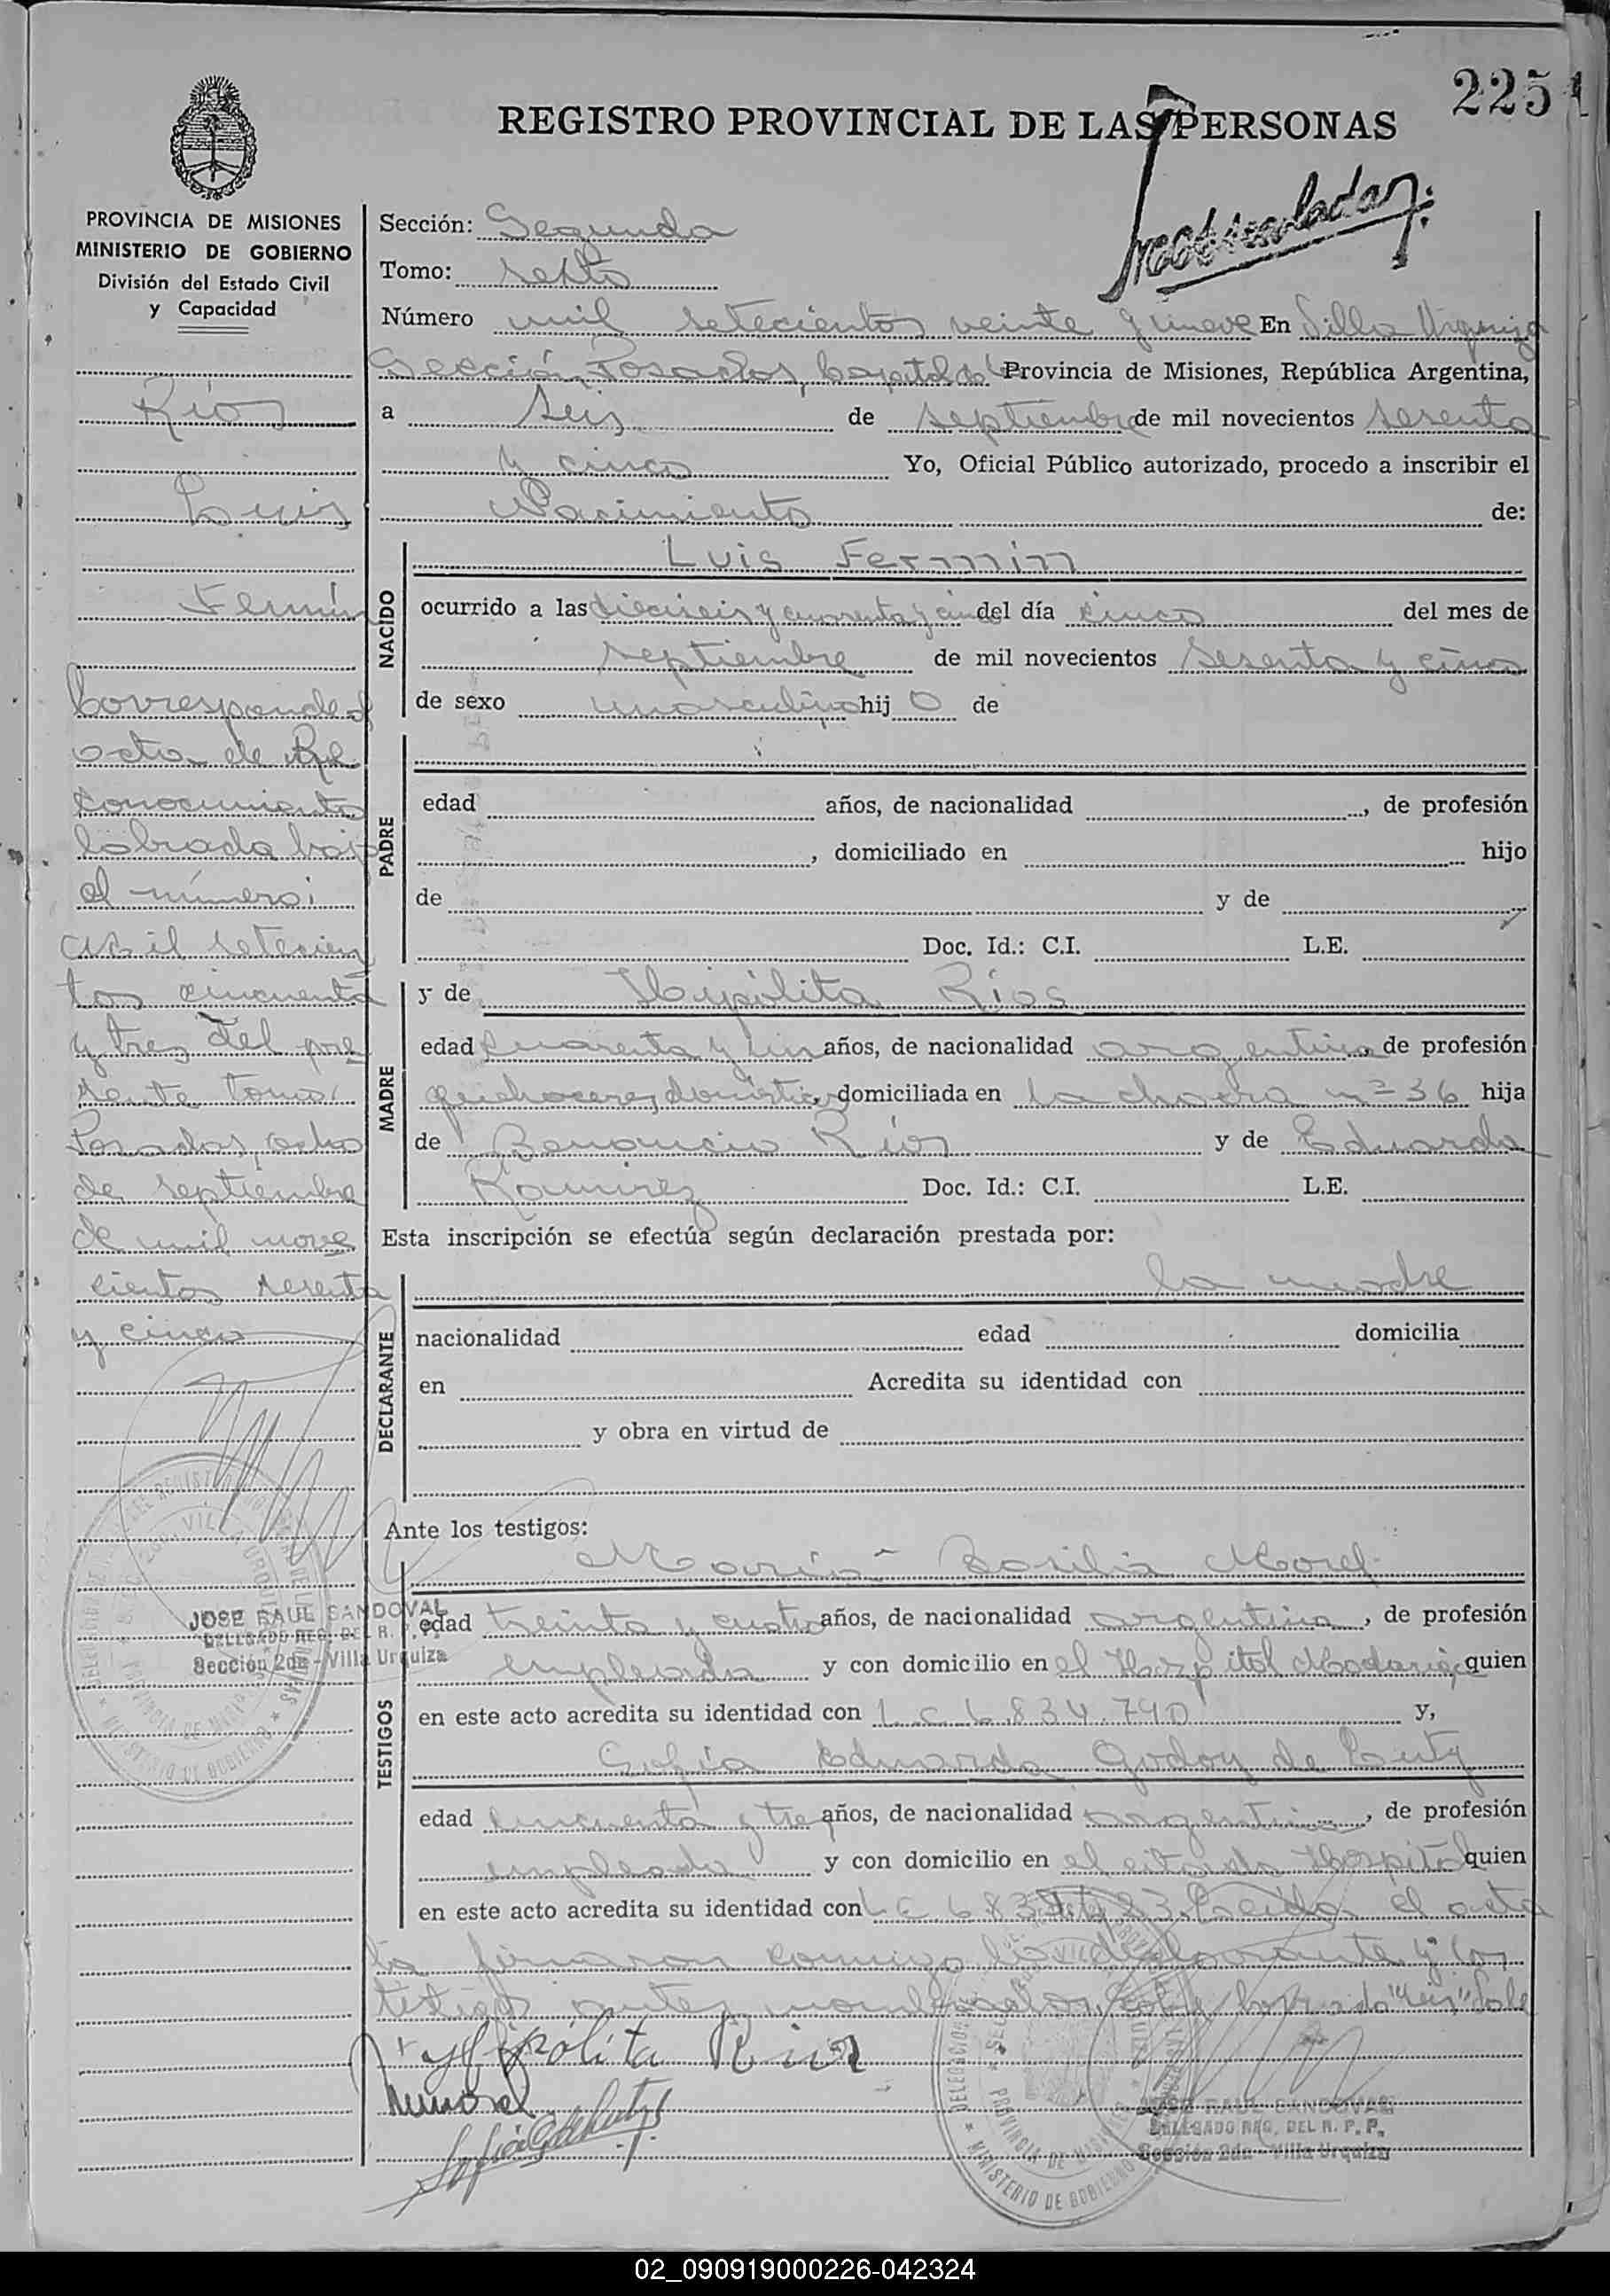 2251
REGISTRO PROVINCIAL DE LAS PERSONAS
PROVINCIA DE MISIONES
MINISTERIO DE GOBIERNO
División del Estado Civil
y Capacidad
Ríos
Luis
Fermín
Corresponde al
acta de Re
conocimiento
labrada bajo
el número:
Mil setecien
tos cincuenta
y tres del pre
sente tomo.
Posadas, ocho
de septiembre
de mil nove
cientos sesenta
y cinco
JOSE RAUL SANDOVAL
DELEGADO REG. DEL R. P. P.
Sección 2da - Villa Urquiza
Sección: Segunda
Tomo: sexto
Número mil setecientos veinte y nueve En Villa Urquiza
Sección, Posadas, Capital de la Provincia de Misiones, República Argentina,
a seis de septiembre de mil novecientos sesenta
y cinco Yo, Oficial Público autorizado, procedo a inscribir el
Nacimiento de:
NACIDO
Luis Fermin
ocurrido a las dieciseis y cuarenta y cinco del día cinco del mes de
septiembre de mil novecientos sesenta y cinco
de sexo masculino hij o de
PADRE
edad años, de nacionalidad , de profesión
, domiciliado en hijo
de y de
Doc. Id.: C.I. L.E.
MADRE
y de Hipólita Ríos
edad cuarenta y un años, de nacionalidad argentina, de profesión
quehaceres domésticos, domiciliada en la chacra nº 36 hija
de Benancio Ríos y de Eduarda
Ramirez Doc. Id.: C.I. L.E.
Esta inscripción se efectúa según declaración prestada por:
DECLARANTE
la madre
nacionalidad edad domicilia
en Acredita su identidad con
y obra en virtud de
Ante los testigos:
TESTIGOS
María Basilia Morel
edad treinta y cuatro años, de nacionalidad argentina, de profesión
empleada y con domicilio en el Hospital Madariaga quien
en este acto acredita su identidad con L.C. 6.834.740 y,
Sofía Eduarda Godoy de Luty
edad cincuenta y tres años, de nacionalidad argentina, de profesión
empleada y con domicilio en el citado Hospital quien
en este acto acredita su identidad con L.C. Leída el acta
la firmaron conmigo la declarante y los
testigos antes nombrados, sobre borrado "seis" Vale
Hipólita Rios
JOSE RAUL SANDOVAL
DELEGADO REG. DEL R. P. P.
Sección 2da - Villa Urquiza
02_090919000226-042324